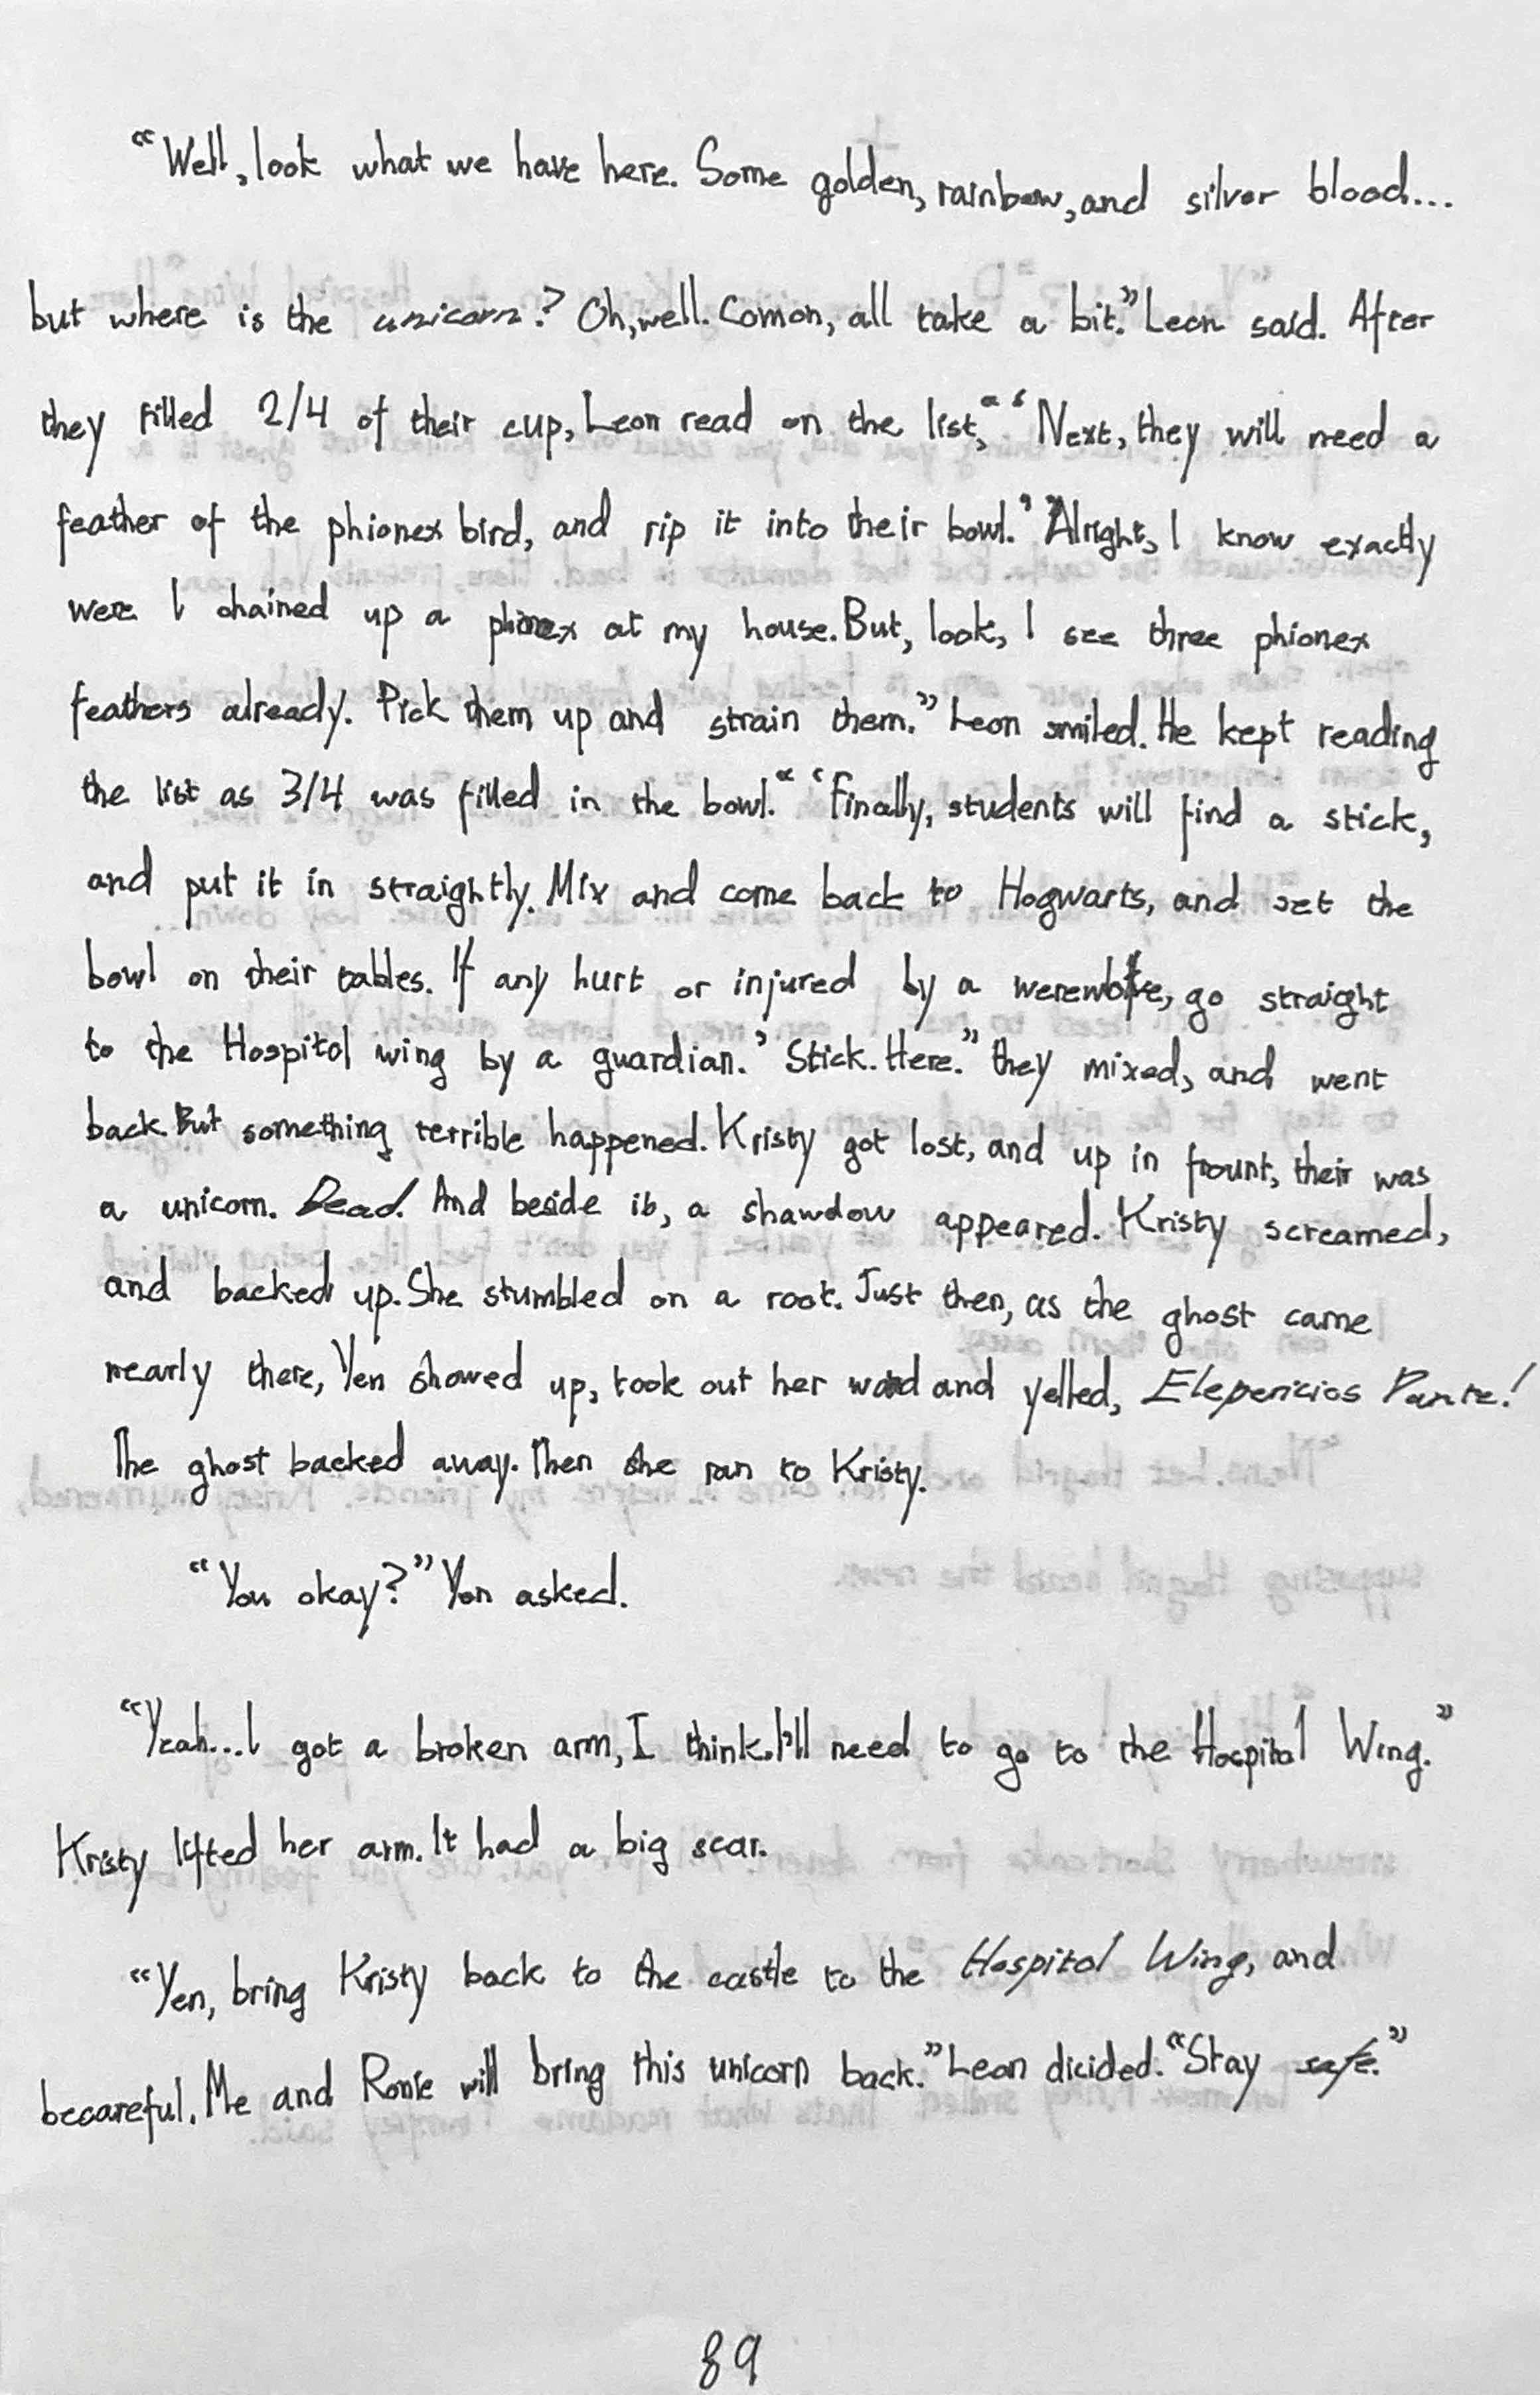 “Well, look what we have here. Some golden, rainbow, and silver blood...
but where is the unicorn? Oh, well. Comon, all take a bit.” Leon said. After
they filled 2/4 of their cup, Leon read on the list, “ ‘Next, they will need a
feather of the phionex bird, and rip it into their bowl.’ ”Alright, I know exactly
were I chained up a phionex at my house. But, look, I see three phionex
feathers already. Pick them up and strain them.” Leon smiled. He kept reading
the list as 3/4 was filled in the bowl. “ ‘Finally, students will find a stick,
and put it in straightly. Mix and come back to Hogwarts, and set the
bowl on their tables. If any hurt or injured by a werewolfe, go straight
to the Hospital wing by a guardian.’ Stick. Here.” they mixed, and went
back. But something terrible happened. Kristy got lost, and up in frount, their was
a unicorn. Dead. And beside it, a shawdow appeared. Kristy screamed,
and backed up. She stumbled on a root. Just then, as the ghost came
nearly there, Yen showed up, took out her wand and yelled, Elepenicios Pante!
The ghost backed away. Then she ran to Kristy.
“You okay?” Yen asked.
“Yeah...I got a broken arm, I think. I'll need to go to the Hospital Wing.”
Kristy lifted her arm. It had a big scar.
“Yen, bring Kristy back to the castle to the Hospital Wing, and
becareful. Me and Ronie will bring this unicorn back.” Leon dicided. “Stay safe.”
89